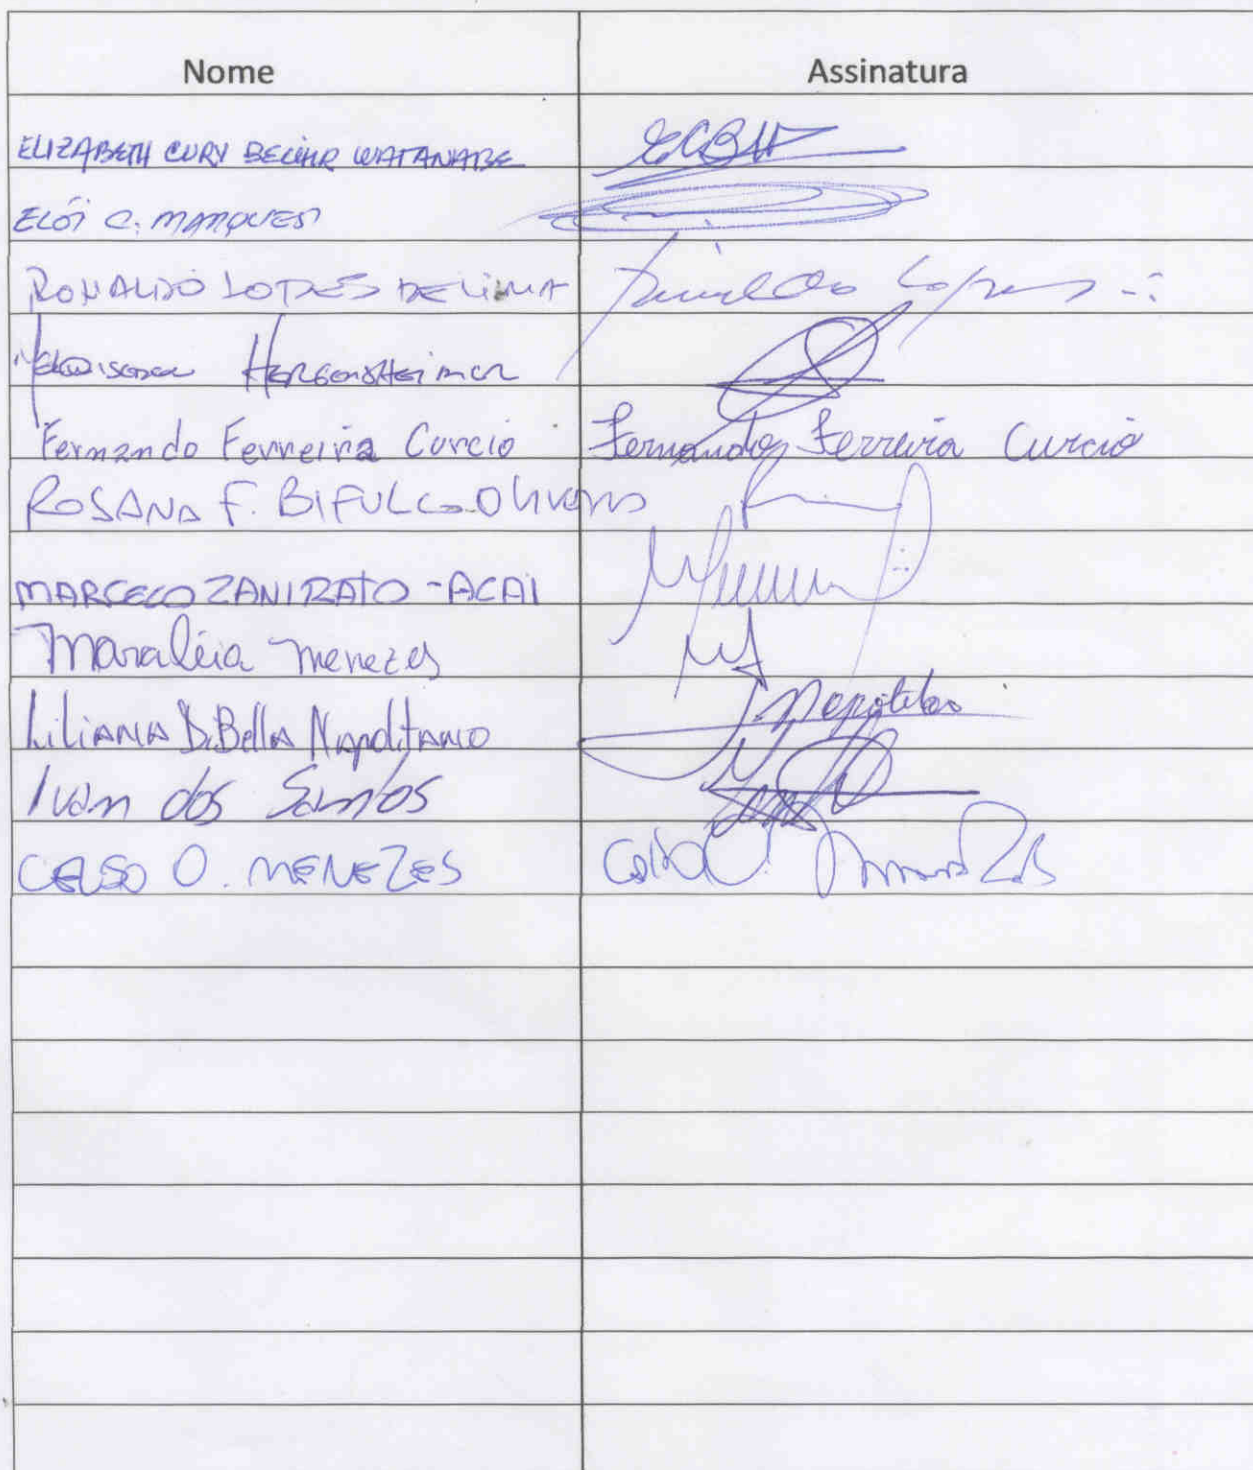 Nome Assinatura
ELIZABETH CURY WATANABE ECBW
ELÓI C. MARQUES
RONALDO LOPES DE LIMA Lopes
HERGENSHEIMER
Fernando Ferreira Curcio Fernando Ferreira Curcio
ROSANA F. BIFULCO Oliveira
MARCELO ZANIRATO - ACAI
Maraléia Menezes
LILIANA DiBella NapolitANO
Ivan dos Santos
CELSO O. MENEZES Celso O.